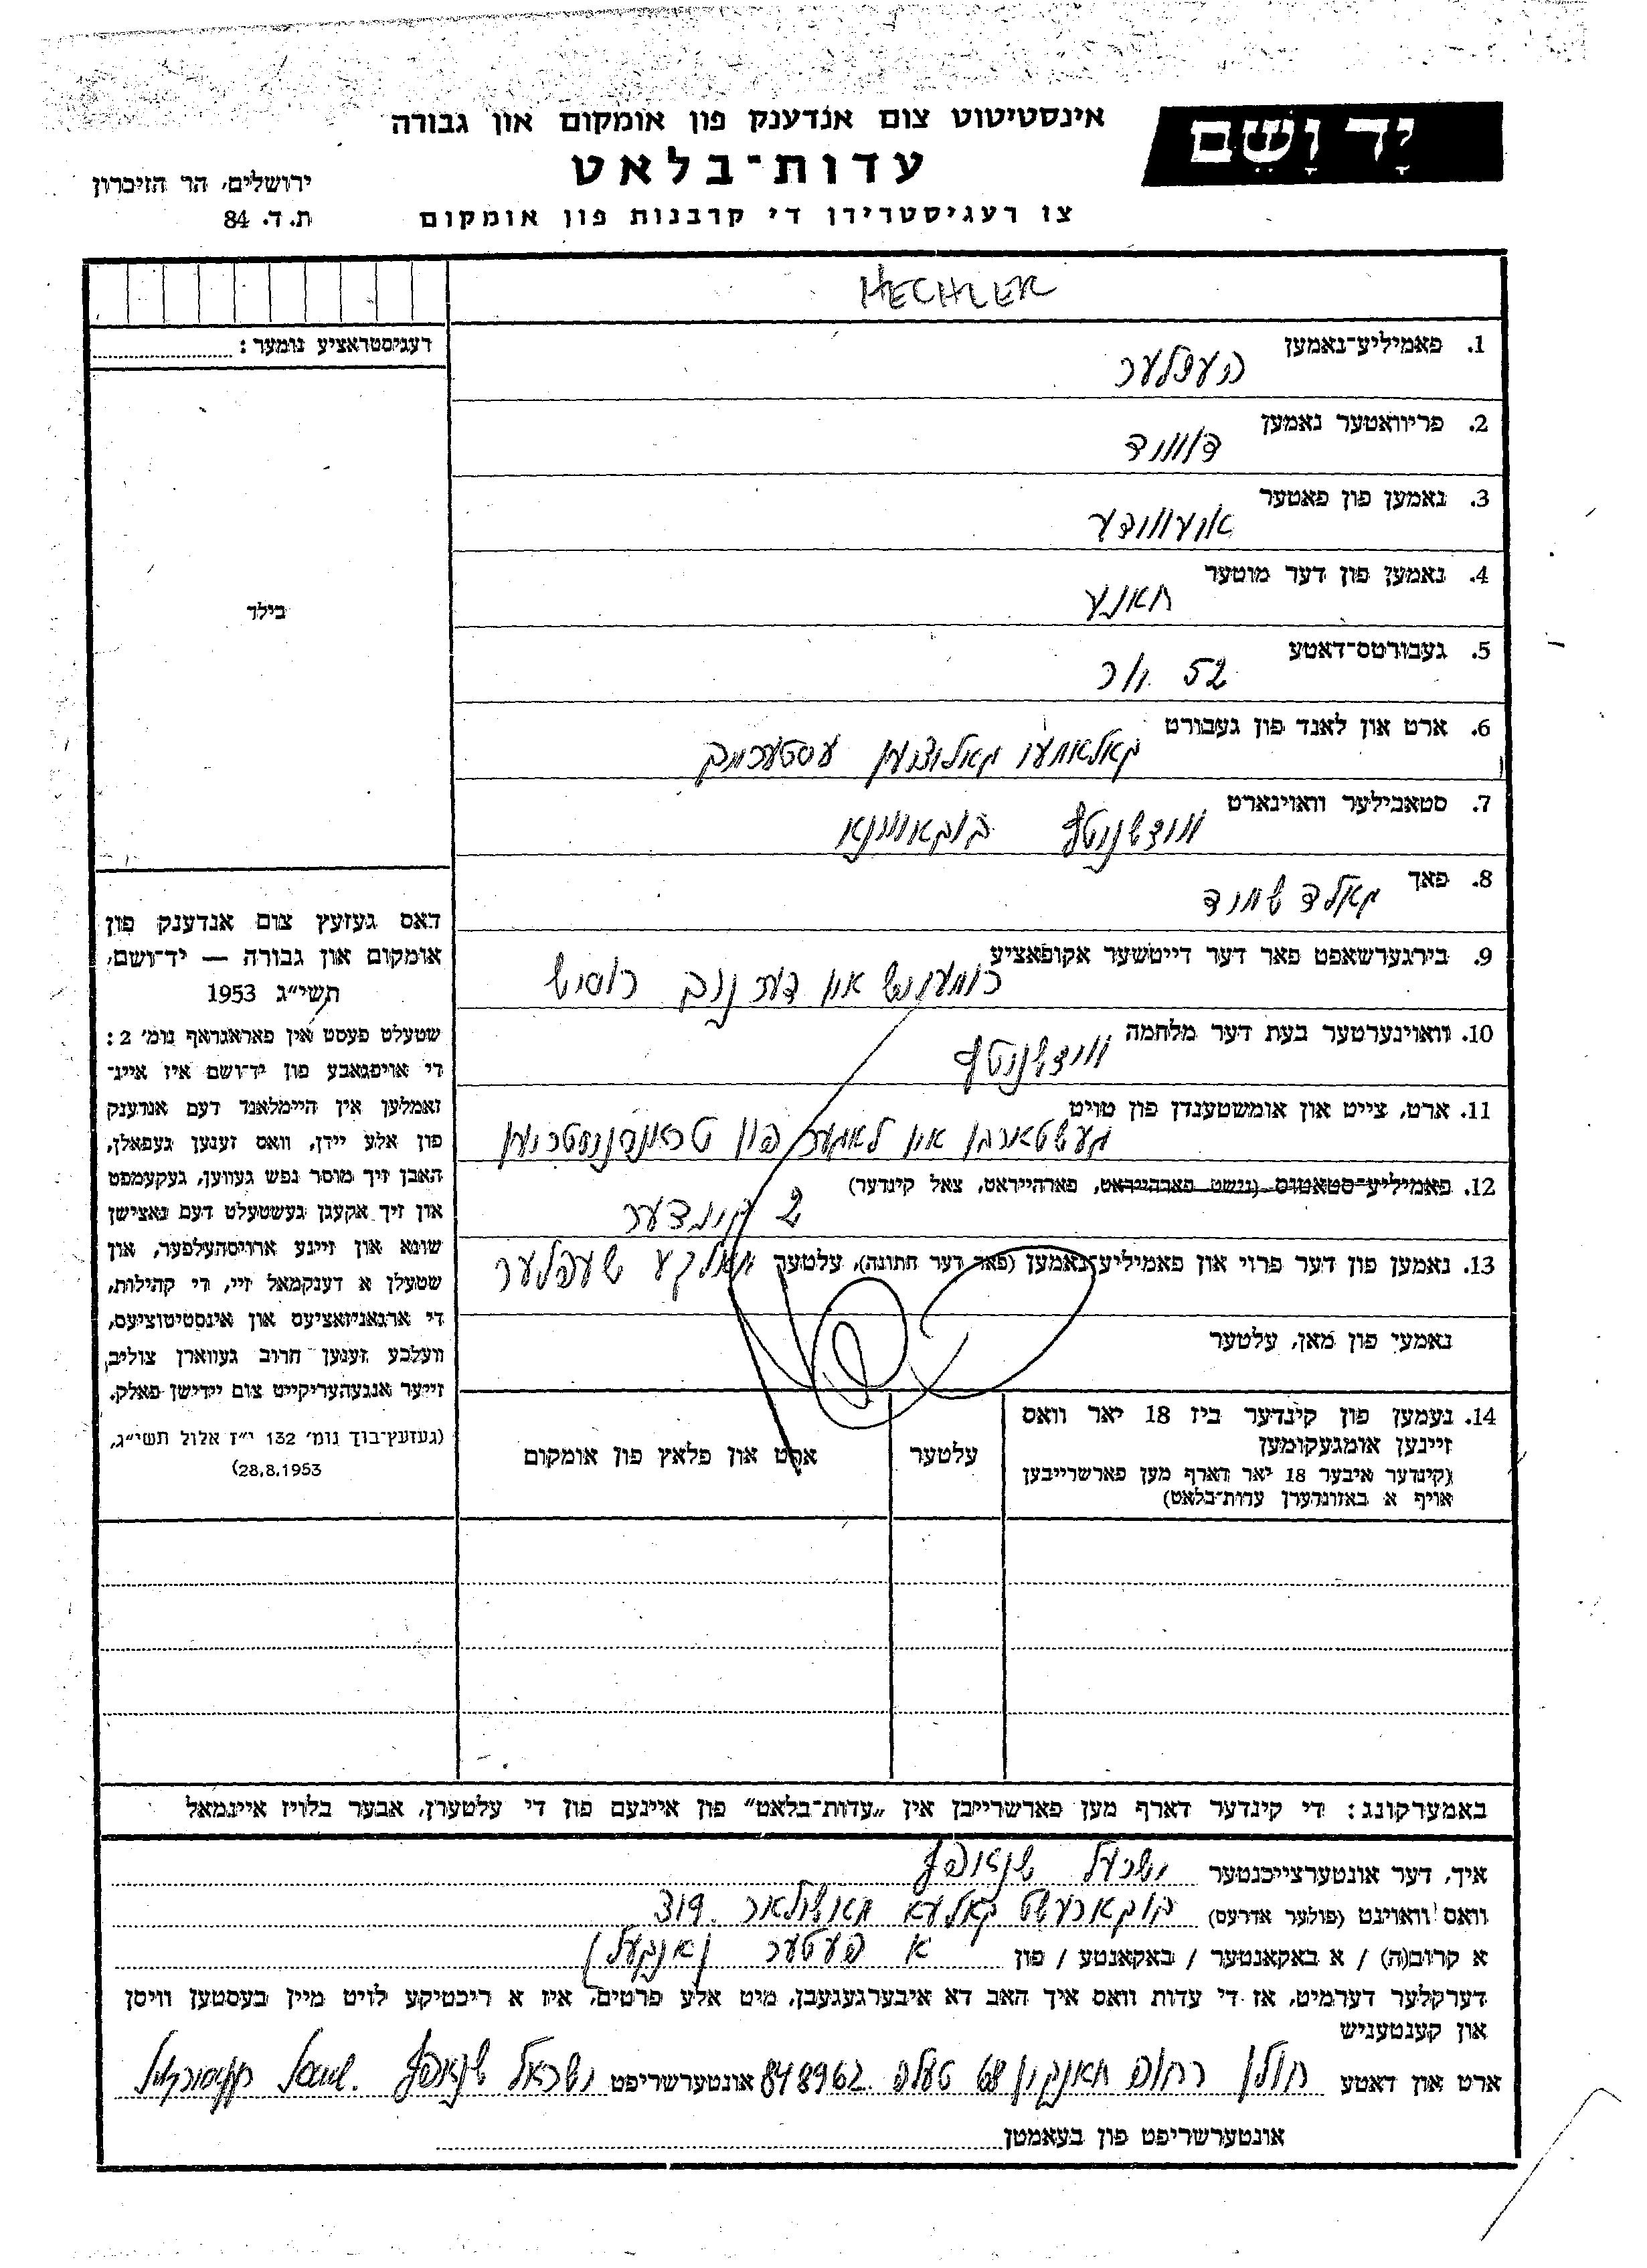 יָד וָשֵׁם
אינסטיטוט צום אנדענק פון אומקום און גבורה
עדות־בלאט
ירושלים, הר הזיכרון
צו רעגיסטרירן די קרבנות פון אומקום
ת. ד. 84
HECHLER
רעגיסטראציע נומער :
1. פאמיליע־נאמען העכלער
2. פריוואטער נאמען דוויד
3. נאמען פון פאטער
4. נאמען פון דער מוטער חאנע
בילד
5. געבורטס־דאטע 52 יאר
6. ארט און לאנד פון געבורט גאליציען עסטערייך
7. סטאבילער וואוינארט וויזשניטץ בוקאווינא
8. פאך גאלדשמיד
9. בירגערשאפט פאר דער דייטשער אקופאציע רומעניש און דער נאך רוסיש
10. וואוינערטער בעת דער מלחמה וויזשניטץ
11. ארט, צייט און אומשטענדן פון טויט געשטארבן אין לאגער פון טראנסניסטריען
12. פאמיליע־סטאטוס (נישט פארהייראט, פארהייראט, צאל קינדער) 2 קינדער
13. נאמען פון דער פרוי און פאמיליע־נאמען (פאר דער חתונה), עלטער מאלקע שעכלער
נאמען פון מאן, עלטער
דאס געזעץ צום אנדענק פון
אומקום און גבורה — יד־ושם,
תשי״ג 1953
שטעלט פעסט אין פאראגראף נומ׳ 2 :
די אויפגאבע פון יד־ושם איז איינ־
זאמלען אין היימלאנד דעם אנדענק
פון אלע יידן, וואס זענען געפאלן,
האבן זיך מוסר נפש געווען, געקעמפט
און זיך אקעגן געשטעלט דעם נאצישן
שונא און זיינע ארויסהעלפער, און
שטעלן א דענקמאל זיי, די קהילות,
די ארגאניזאציעס און אינסטיטוציעס,
וועלכע זענען חרוב געווארן צוליב
זייער אנגעהעריקייט צום יידישן פאלק.
(געזעץ־בוך נומ׳ 132 י״ז אלול תשי״ג,
28.8.1953)
14. נעמען פון קינדער ביז 18 יאר וואס
זיינען אומגעקומען
(קינדער איבער 18 יאר דארף מען פארשרייבן
אויף א באזונדערן עדות־בלאט)
עלטער
ארט און פלאץ פון אומקום
באמערקונג : די קינדער דארף מען פארשרייבן אין „עדות־בלאט״ פון איינעם פון די עלטערן, אבער בלויז איינמאל
איך, דער אונטערצייכנטער ישראל שנאפף
וואס וואוינט (פולער אדרעס) בוקארעשט קאלעא מאשילאר 319
א קרוב(ה) / א באקאנטער / באקאנטע / פון א פעטער (אנקעל)
דערקלער דערמיט, אז די עדות וואס איך האב דא איבערגעגעבן, מיט אלע פרטים, איז א ריכטיקע לויט מיין בעסטען וויסן
און קענטעניש
ארט און דאטע חולון רחוב 68 טעלפ. 848962 אונטערשריפט ישראל שנאפף
אונטערשריפט פון בעאמטן